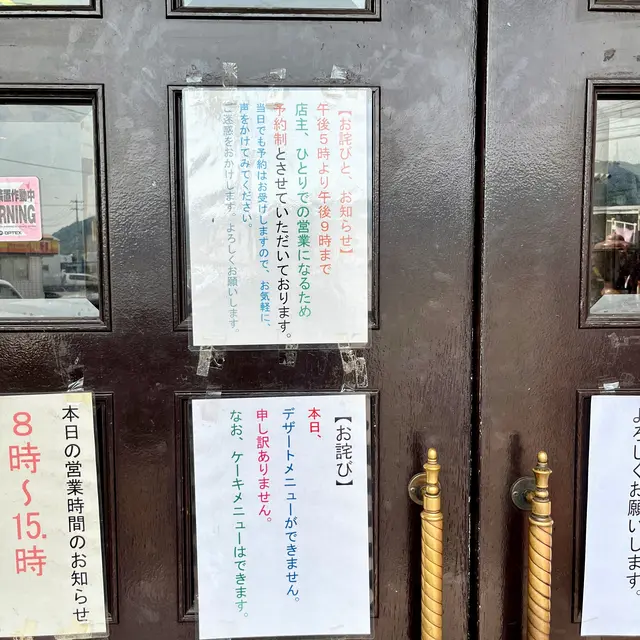 【お詫びと、お知らせ】
午後5時より午後9時まで
店主、ひとりでの営業になるため
予約制とさせていただいております。
当日でも予約はお受けしますので、お気軽に、
声をかけてみてください。
ご迷惑をおかけします。よろしくお願いします。
【お詫び】
本日、
デザートメニューができません。
申し訳ありません。
なお、ケーキメニューはできます。
本日の営業時間のお知らせ
8時〜15.時
よろしくお願いします。
作動中
ARNING
OPTEX